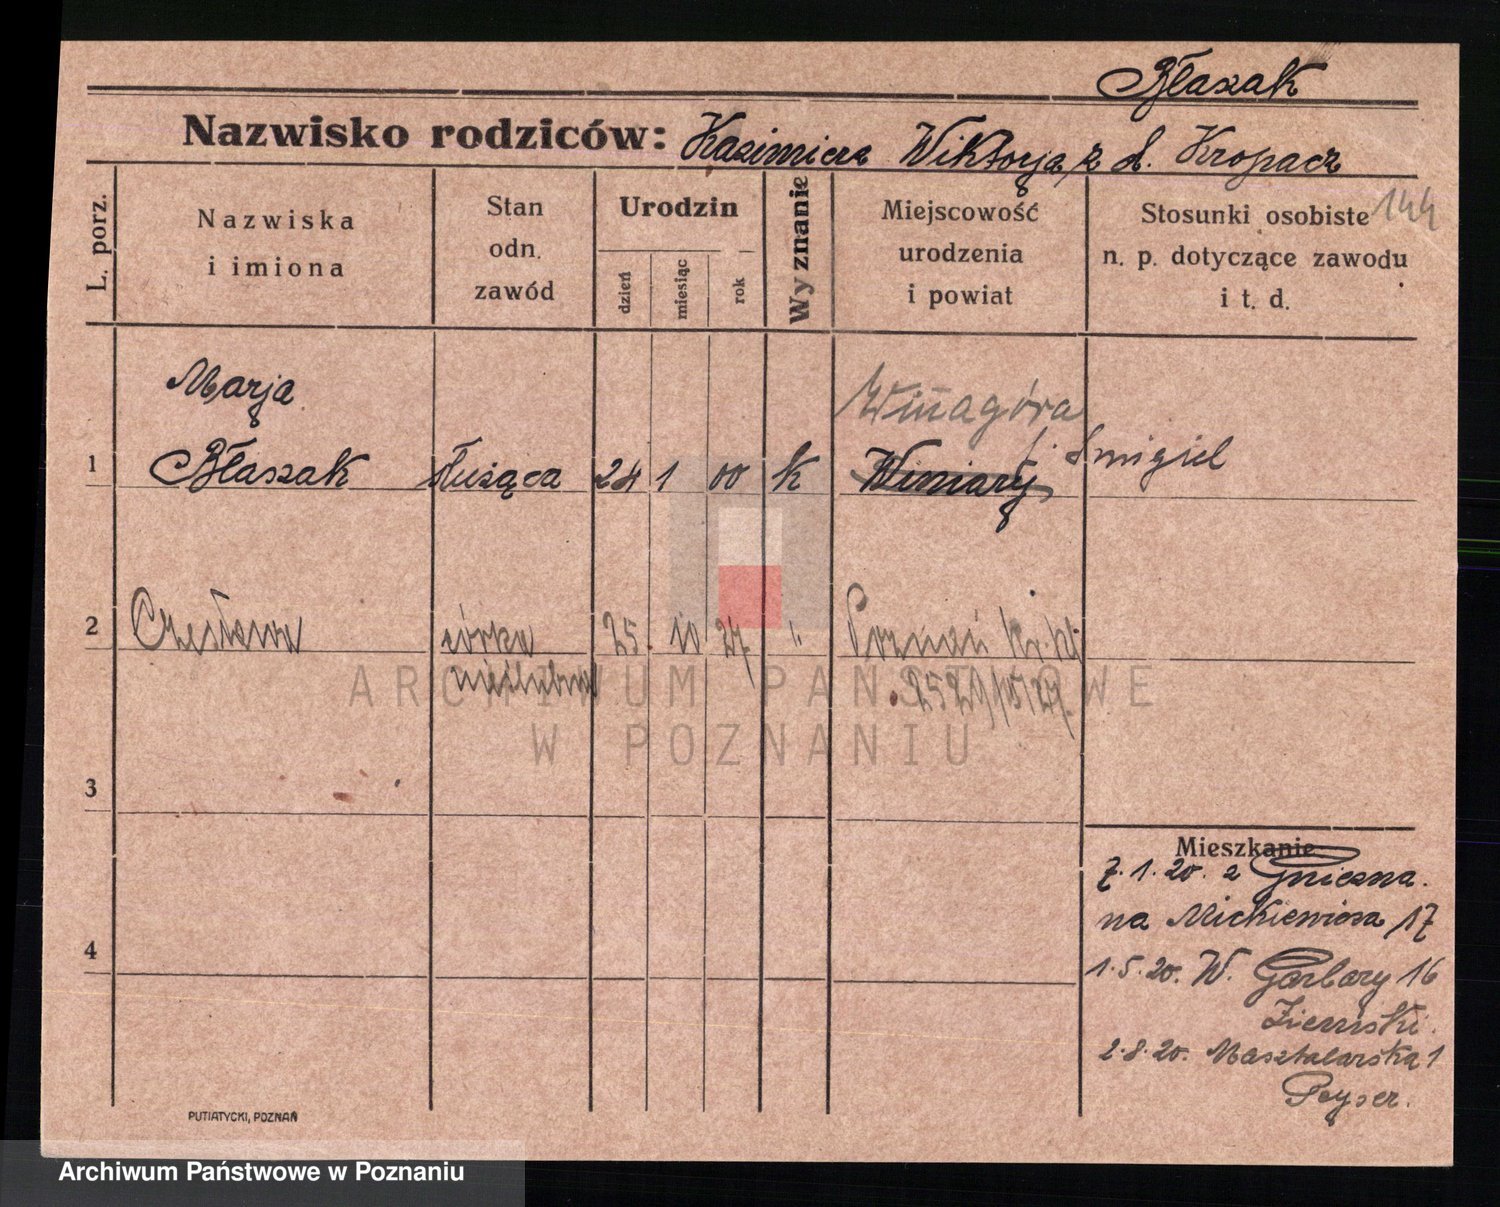 Błaszak
Nazwisko rodziców: Kazimierz Wiktorja z d. Kropacz
144
L. porz.
Nazwiska
i imiona
Stan
odn.
zawód
Urodzin
dzień
miesiąc
rok
Wyznanie
Miejscowość
urodzenia
i powiat
Stosunki osobiste
n. p. dotyczące zawodu
i t. d.
Marja
Winagóra
1 Błaszak służąca 24 1 00 k Winiary Śmigiel
2 Czesława córka 25 10 27 " Poznań
nieślubna
3
Mieszkanie
7.1.20. z Gniezna.
na Mickiewicza 17
4
1.5.20. W. Garbary 16
Ziemski.
2.8.20. Masztalarska 1
Peyser.
PUTIATYCKI, POZNAŃ
ARCHIWUM PAŃSTWOWE
W POZNANIU
Archiwum Państwowe w Poznaniu